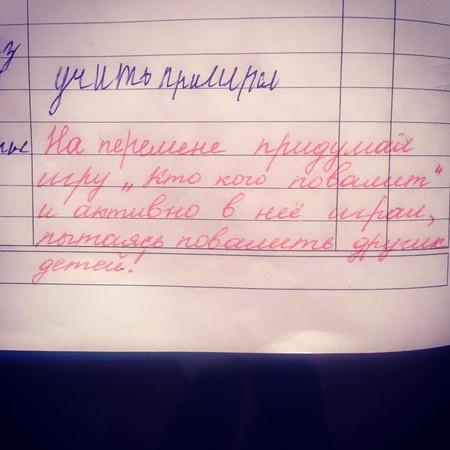 учить примеры
На перемене придумал
игру „Кто кого повалит"
и активно в неё играл,
пытаясь повалить других
детей!